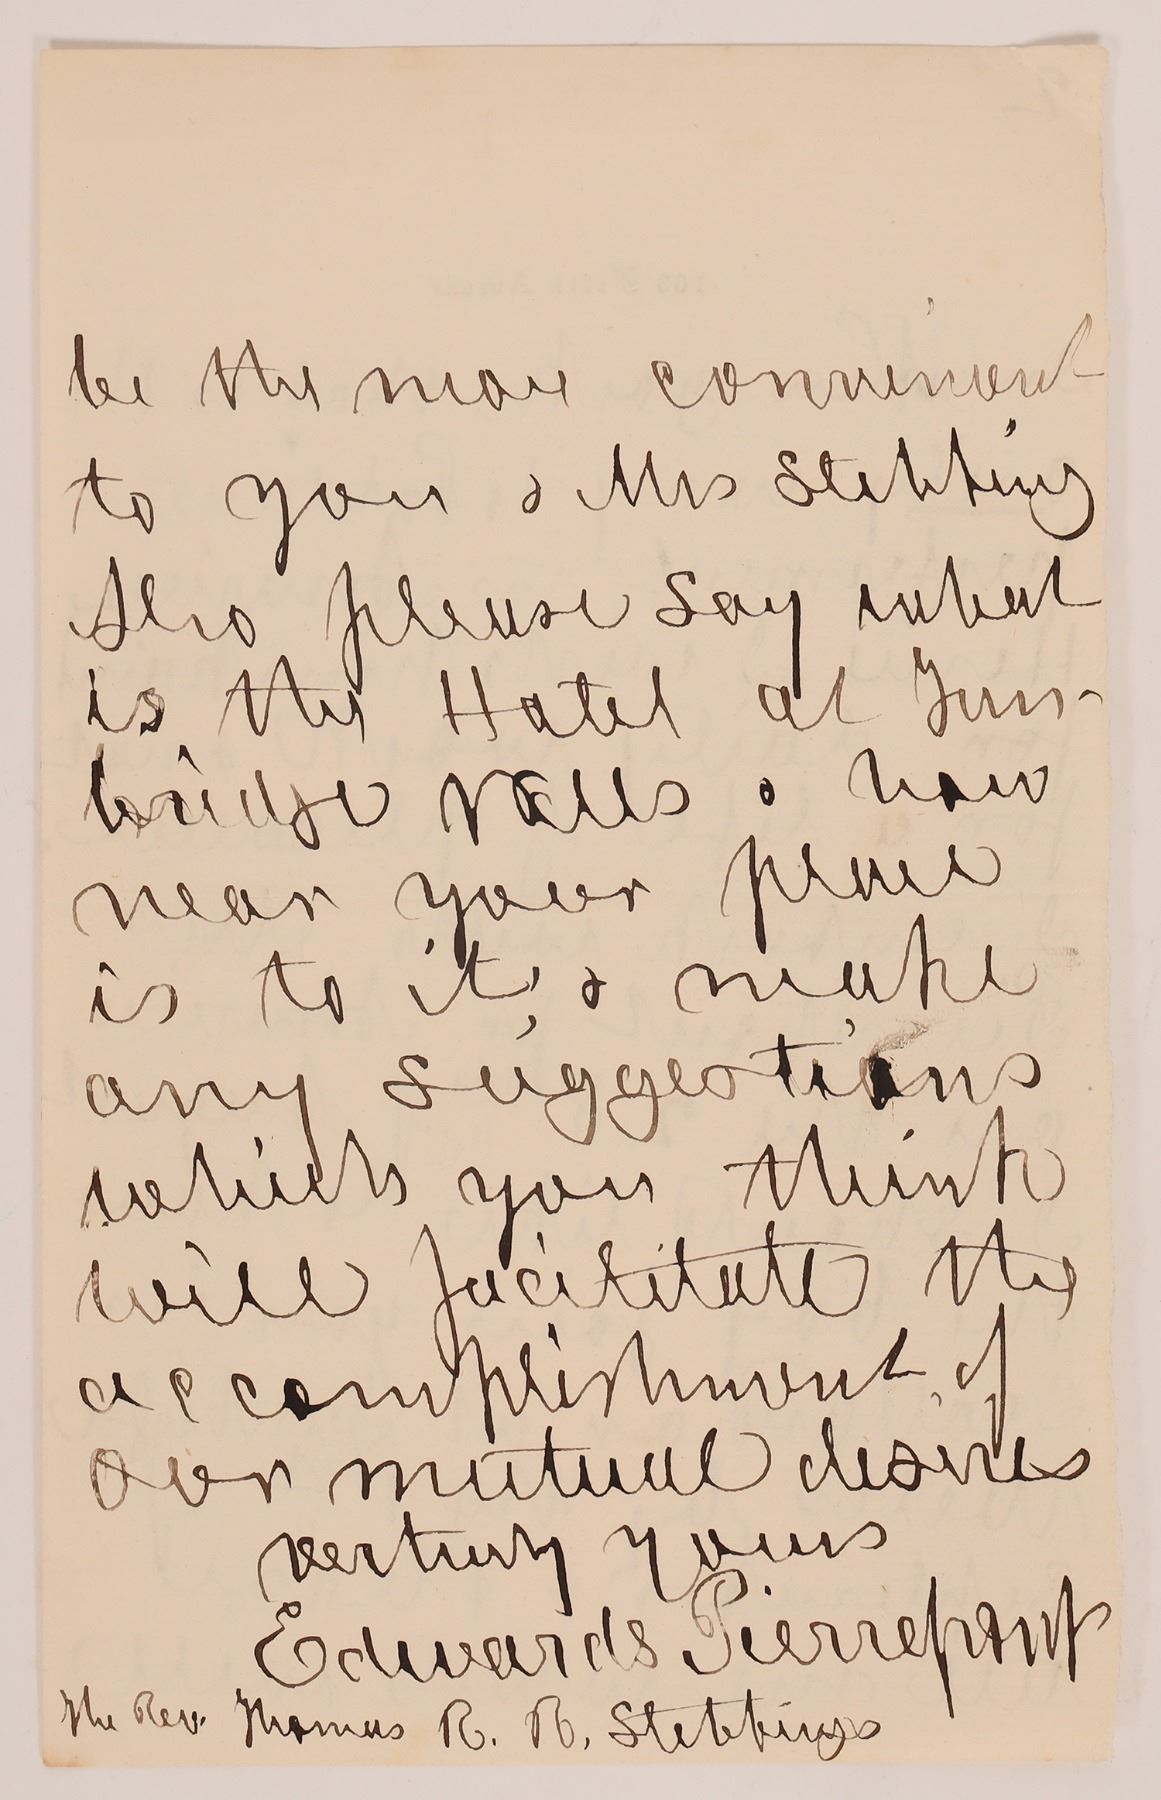 be the more convenient
to you & Mrs Stebbing
Also please say what
is the Hotel at Tun-
bridge Wells & how
near your place
is to it, & make
any suggestions
which you think
will facilitate the
accomplishment of
our mutual desires
very truly yours
Edwards Pierrepont
The Rev. Thomas R. R. Stebbings